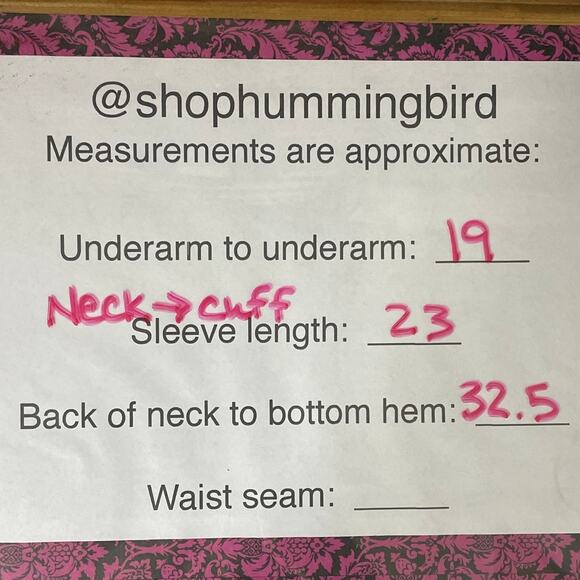 @shophummingbird
Measurements are approximate:
Underarm to underarm: 19
Neck → cuff
Sleeve length: 23
Back of neck to bottom hem: 32.5
Waist seam: